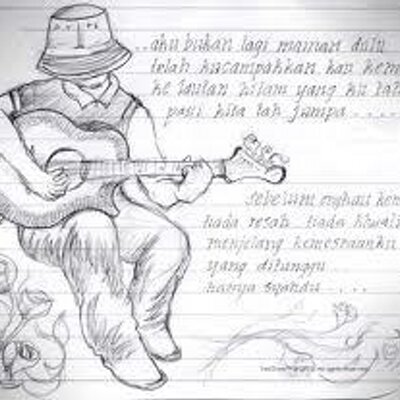 ..aku bukan lagi mainan dulu
telah kucampakkan kau kem
ke lautan hitam yang ku
pasti kita tak jumpa.....
Sebelum engkau kem
tiada resah tiada
menjelang kemesraanku
yang ditunggu
hanya syahdu....